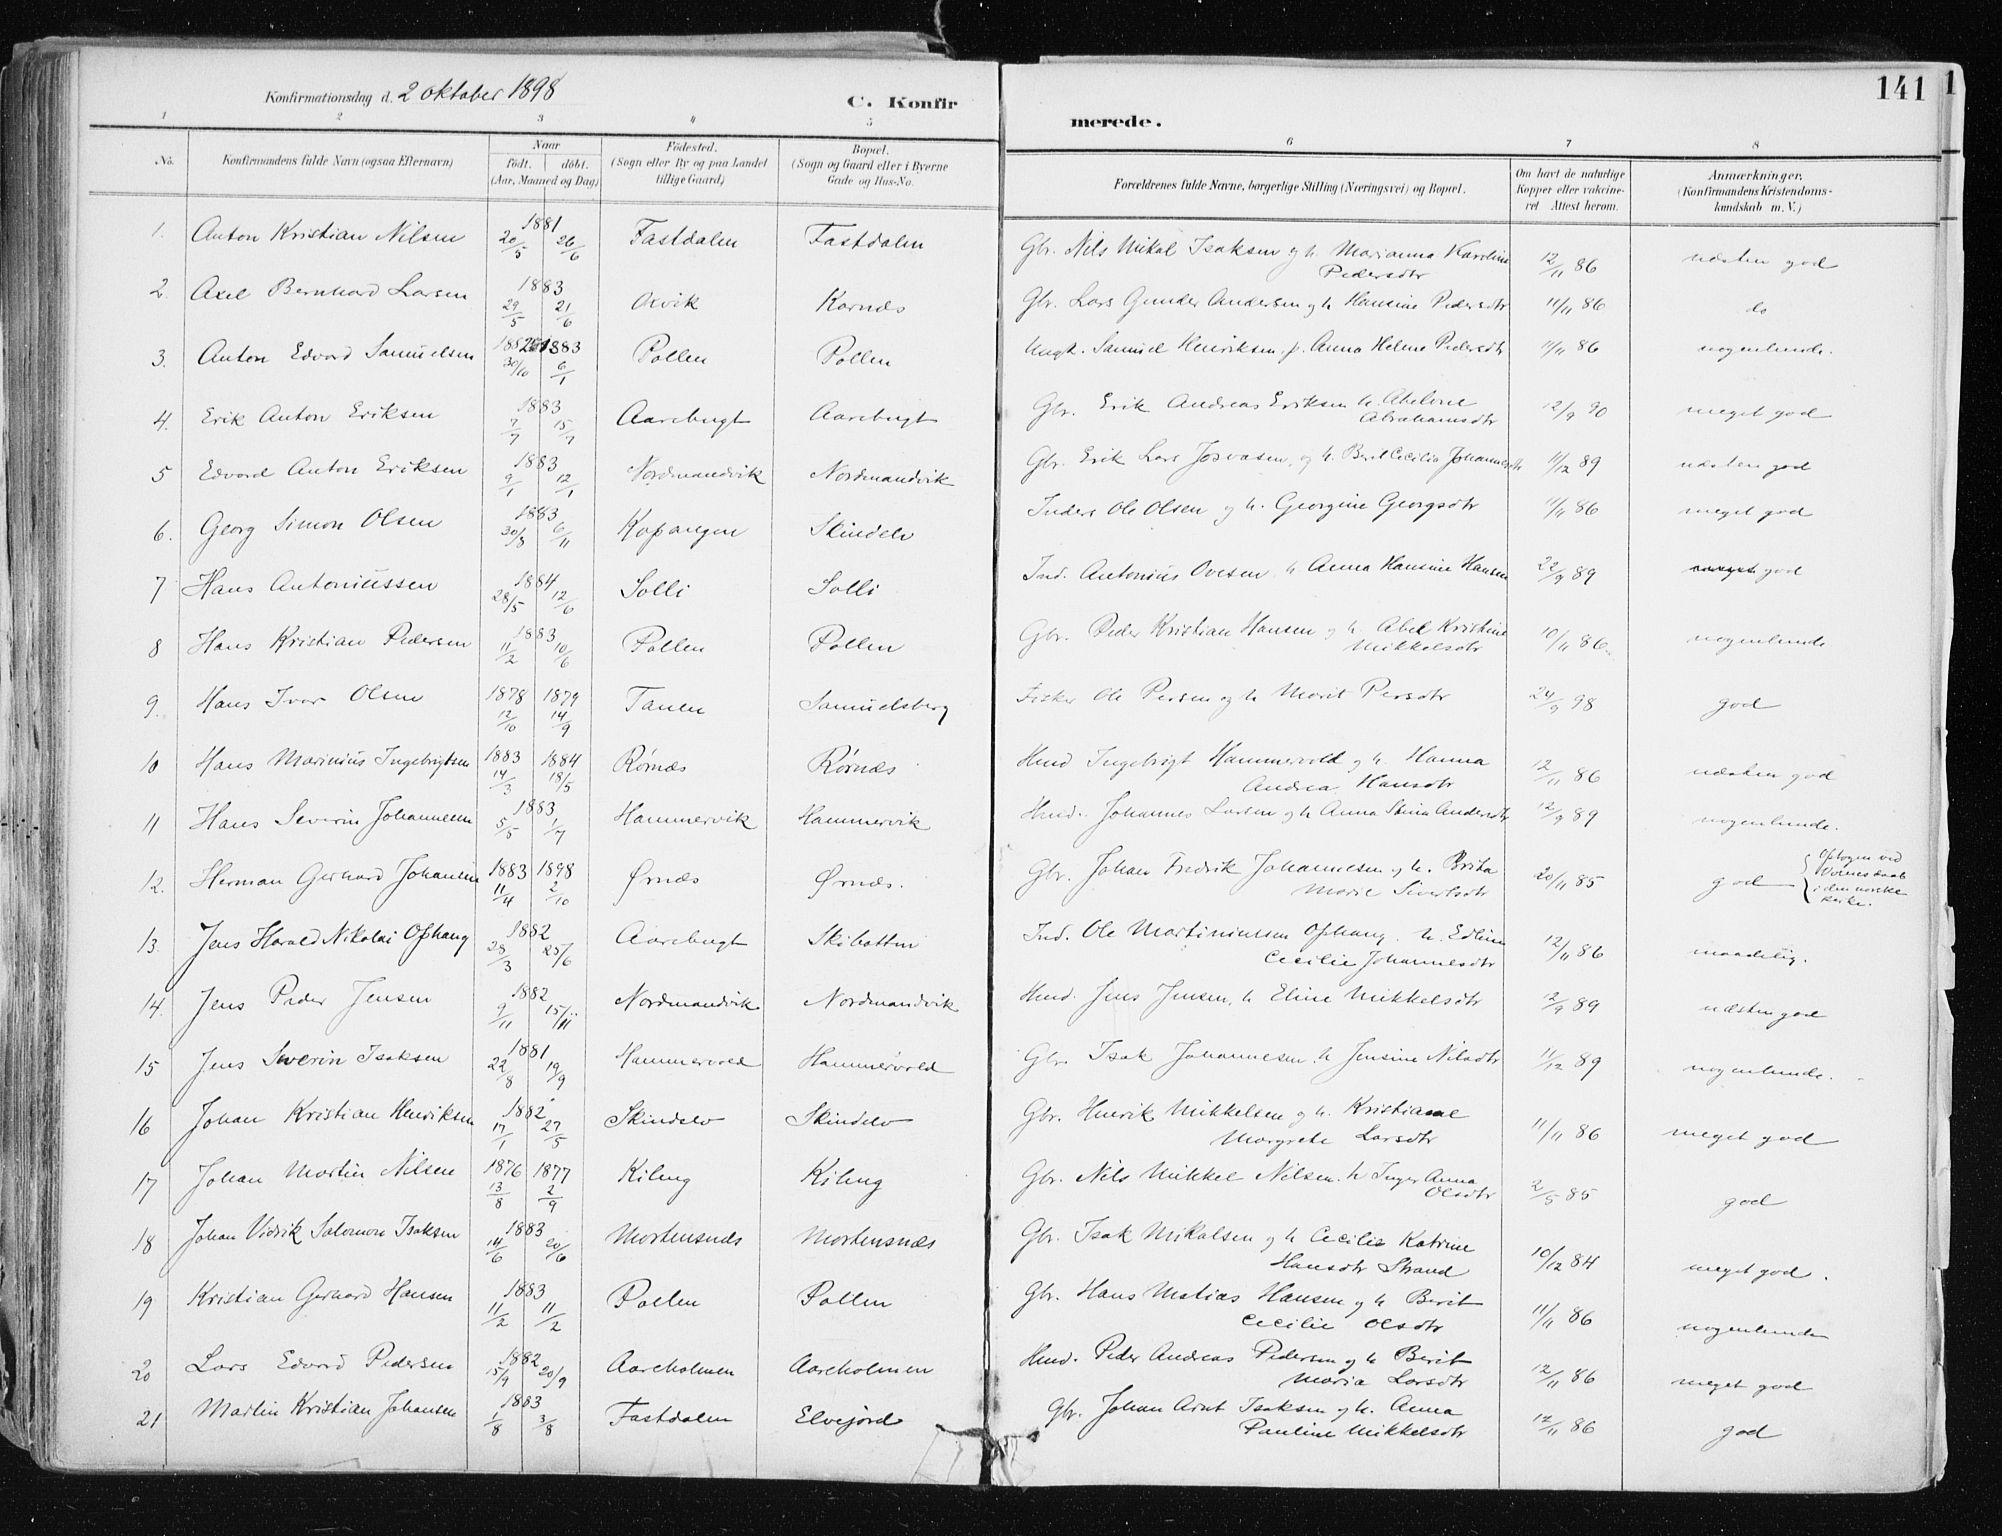 141
Konfirmationsdag d. 2 oktober 1898 C. Konfirmerede.
1 2 3 4 5 6 7 8
No. Konfirmandens fulde Navn (ogsaa Efternavn) Naar født. døbt. (Aar, Maaned og Dag) Fødested. (Sogn eller By og paa Landet tillige Gaard) Bopæl. (Sogn og Gaard eller i Byerne Gade og Hus-No. Forældrenes fulde Navne, borgerlige Stilling (Næringsvei) og Bopæl. Om havt de naturlige Kopper eller vaccineret Attest herom. Anmærkninger. (Konfirmandens Kristendomskundskab m. V.)
1. Anton Kristian Nilsen 1881 20/5 26/6 Fastdalen Fastdalen Gbr. Nils Mikal Isaksen og h. Marianna Karoline Pedersdtr 12/11 86 næsten god
2. Axel Bernhard Larsen 1883 29/5 21/6 Oxvik Kornæs Gbr. Lars Gunder Andersen og h Hansine Pedersdtr 11/11 86 do
3. Anton Edvard Samuelsen 30/10 1883 6/1 Pollen Pollen Ungk. Samuel Henriksen, p. Anna Helene Pedersdtr 11/11 86 nogenlunde.
4. Erik Anton Eriksen 1883 7/7 15/7 Aarebugt Aarebugt Gbr. Erik Andreas Eriksen h. Abeline Abrahamsdtr 12/9 90 meget god
5 Edvard Anton Eriksen 1883 9/1 12/1 Nordmandvik Nordmandvik Gbr. Erik Lars Josvasen, og h. Beret Cecilia Johannesdtr 11/12 89 næsten god
6. Georg Simon Olsen 1883 30/8 6/11 Kopangen Skindelv Inders Ole Olsen og h. Georgine Georgsdtr 11/11 86 meget god
7 Hans Antoniussen 1884 28/5 12/6 Solli Solli Ind. Antonius Ovesen h Anna Hansine Hansen 22/9 89 god
8 Hans Kristian Pedersen 1883 11/2 10/6 Pollen Pollen Gbr. Peder Kristian Hansen og h. Abel Kristine Mikkelsdtr 10/11 86 nogenlunde
9. Hans Ivar Olsen 1878 12/10 1879 14/9 Tanen Samuelsberg Fisker Ole Persen og h Marit Persdtr 24/9 98 god
10 Hans Marinius Ingebrigtsen 1883 14/3 1884 18/5 Rørnæs Rørnæs Hmd Ingebrigt Hammervold og h. Hanna Andrea Hansdtr 12/11 86 næsten god
11 Hans Severin Johannesen 1883 5/5 1/7 Hammervik Hammervik Hmd. Johannes Larsen og h Anna Stina Andersdtr 12/9 89 nogenlunde.
12. Herman Gerhard Johansen 1883 11/4 1898 2/10 Ørnæs Ørnæs. Gbr. Johan Fredrik Johannesen og h. Brita Marie Sivertsdtr 20/11 85 god Optagen ved Voxnes daab i den norske Kirke.
13. Jens Harald Nikolai Ophaug 1882 28/3 25/6 Aarebugt Skibotten Ind. Ole Martiniussen Ophaug. h. Edline Cecilie Johannesdtr 12/11 86 maadelig.
14. Jens Peder Jensen 1882 9/11 15/11 Nordmandvik Nordmandvik Hmd. Jens Jensen, h Eline Mikkelsdtr 12/9 89 næsten god
15 Jens Severin Isaksen 1881 22/8 19/9 Hammervold Hammervold Gbr. Isak Johannesen h Jensine Nilsdtr 11/12 89 nogenlunde.
16 Johan Kristian Henriksen 1882 17/1 27/5 Skindelv Skindelv Gbr. Henrik Mikkelsen og h. Kristiane Margrete Larsdtr 11/11 86 meget god
17 Johan Martin Nilsen 1876 13/8 1877 2/9 Kiling Kiling Gbr. Nils Mikkel Nilsen. h Inger Anna Olsdtr 2/5 85 god
18 Johan Vidrik Salomon Isaksen 1883 14/6 20/6 Mortensnæs Mortensnæs Gbr. Isak Mikalsen og h Cecilie Katrine Hansdtr Strand 10/12 84 meget god.
19 Kristian Gerhard Hansen 1883 11/2 11/2 Pollen Pollen Gbr. Hans Matias Hansen og h Berit Cecilie Olsdtr 11/11 86 nogenlunde
20 Lars Edvard Pedersen 1882 15/9 20/9 Aareholmen Aareholmen Hmd. Peder Andreas Pedersen og h Berit Maria Larsdtr 12/11 86 meget god
21 Martin Kristian Johansen 1883 1/8 3/8 Fastdalen Elvejord Gbr. Johan Arnt Isaksen og h. Anna Pauline Mikkelsdtr 12/11 86 god